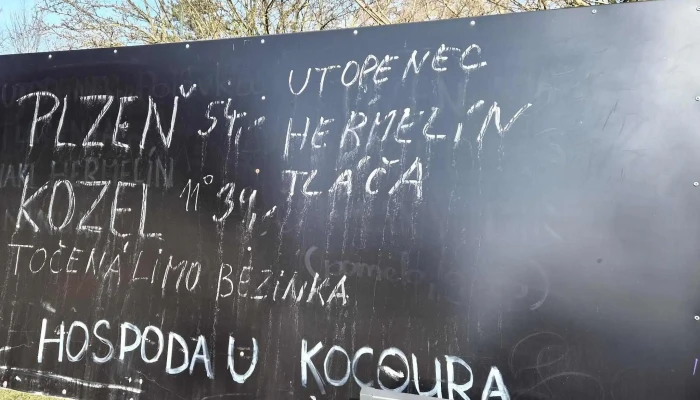 PLZEŇ 54,-
KOZEL 11° 34,-
TOČENÁ LIMO BEZINKA
UTOPENEC
HERMELÍN
TLAČA
HOSPODA U KOCOURA